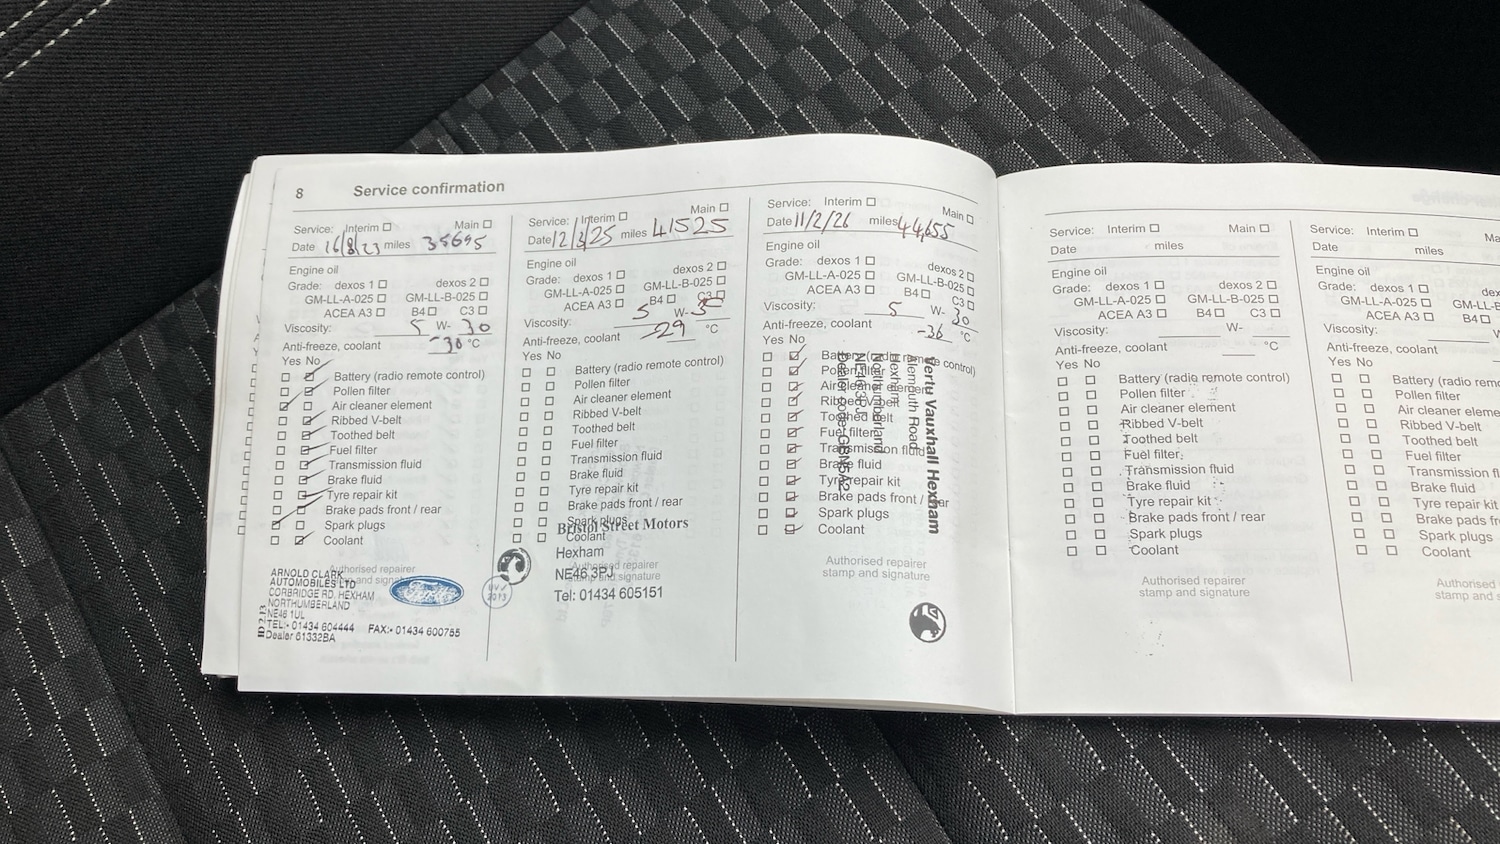 8 Service confirmation
Service: Interim Main
Date 16/8/23 miles 35695
Engine oil
Grade: dexos 1 dexos 2
GM-LL-A-025 GM-LL-B-025
ACEA A3 B4 C3
Viscosity: 5 W- 30
Anti-freeze, coolant -30 °C
Yes No
Battery (radio remote control)
Pollen filter
Air cleaner element
Ribbed V-belt
Toothed belt
Fuel filter
Transmission fluid
Brake fluid
Tyre repair kit
Brake pads front / rear
Spark plugs
Coolant
Authorised repairer
stamp and signature
ARNOLD CLARK
AUTOMOBILES LTD
CORBRIDGE RD. HEXHAM
NORTHUMBERLAND
NE46 1UL
TEL:- 01434 604444 FAX:- 01434 600755
Dealer 61332BA
Ford
Service: Interim Main
Date 12/3/25 miles 41525
Engine oil
Grade: dexos 1 dexos 2
GM-LL-A-025 GM-LL-B-025
ACEA A3 B4 C3
Viscosity: 5 W-
Anti-freeze, coolant -29 °C
Yes No
Battery (radio remote control)
Pollen filter
Air cleaner element
Ribbed V-belt
Toothed belt
Fuel filter
Transmission fluid
Brake fluid
Tyre repair kit
Brake pads front / rear
Spark plugs
Coolant
Bristol Street Motors
Hexham
Authorised repairer
stamp and signature
NE46 3PJ
Tel: 01434 605151
Service: Interim Main
Date 11/2/26 miles 44,655
Engine oil
Grade: dexos 1 dexos 2
GM-LL-A-025 GM-LL-B-025
ACEA A3 B4 C3
Viscosity: 5 W- 30
Anti-freeze, coolant -36 °C
Yes No
Battery (radio remote control)
Pollen filter
Air cleaner element
Ribbed V-belt
Toothed belt
Fuel filter
Transmission fluid
Brake fluid
Tyre repair kit
Brake pads front / rear
Spark plugs
Coolant
Vertu Vauxhall Hexham
Alemouth Road
Hexham
Northumberland
NE46 3PJ
Authorised repairer
stamp and signature
Service: Interim Main
Date miles
Engine oil
Grade: dexos 1 dexos 2
GM-LL-A-025 GM-LL-B-025
ACEA A3 B4 C3
Viscosity: W-
Anti-freeze, coolant °C
Yes No
Battery (radio remote control)
Pollen filter
Air cleaner element
Ribbed V-belt
Toothed belt
Fuel filter
Transmission fluid
Brake fluid
Tyre repair kit
Brake pads front / rear
Spark plugs
Coolant
Authorised repairer
stamp and signature
Service: Interim Ma
Date miles
Engine oil
Grade: dexos 1 dex
GM-LL-A-025 GM-LL-B
ACEA A3 B4
Viscosity:
Anti-freeze, coolant
Yes No
Battery (radio remo
Pollen filter
Air cleaner eleme
Ribbed V-belt
Toothed belt
Fuel filter
Transmission fl
Brake fluid
Tyre repair kit
Brake pads fr
Spark plugs
Coolant
Authorised
stamp and s